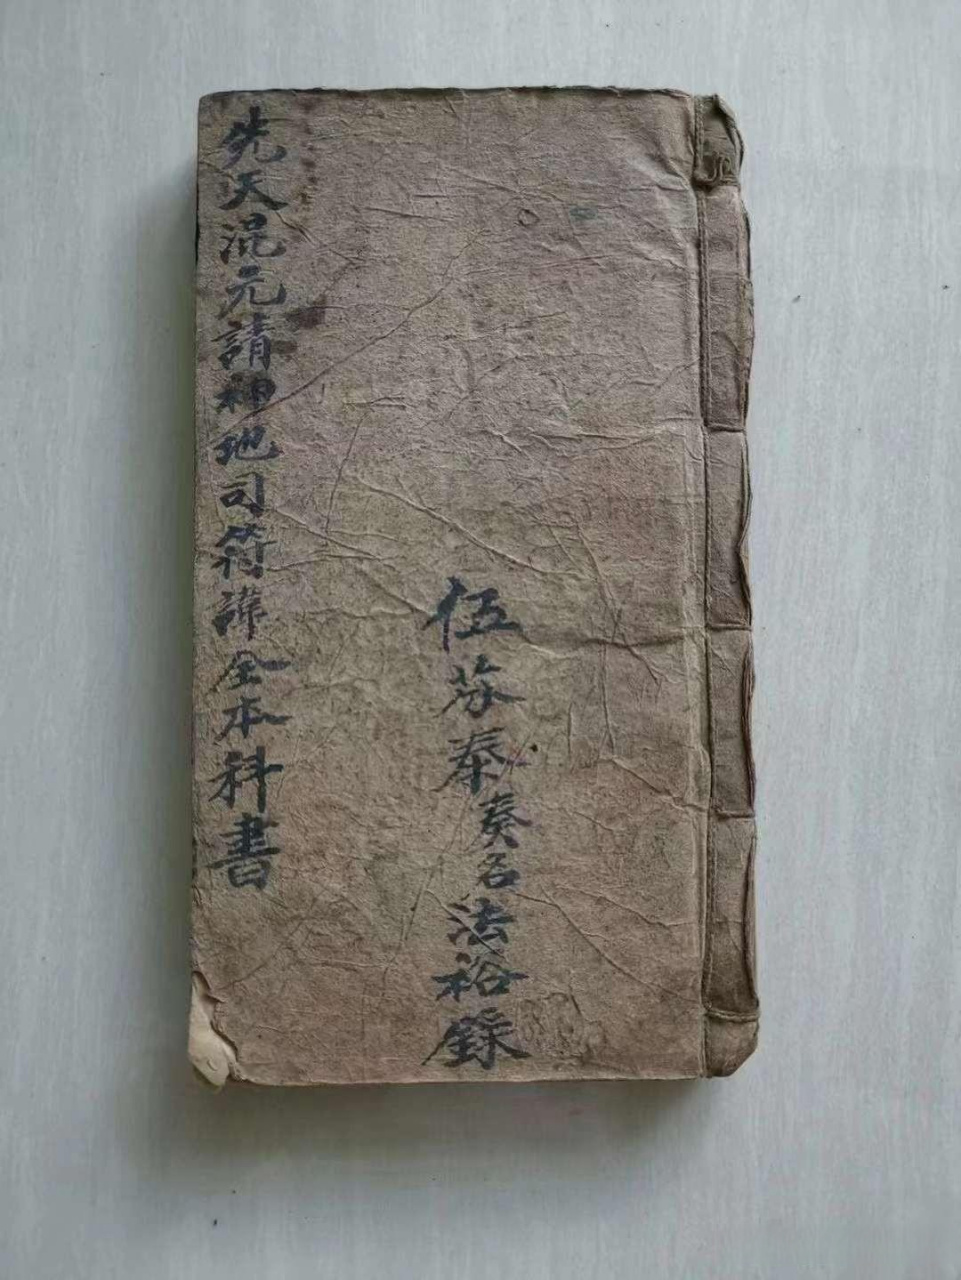 先天混元請神地司符諱全本科書
伍芬泰奏名法裕錄